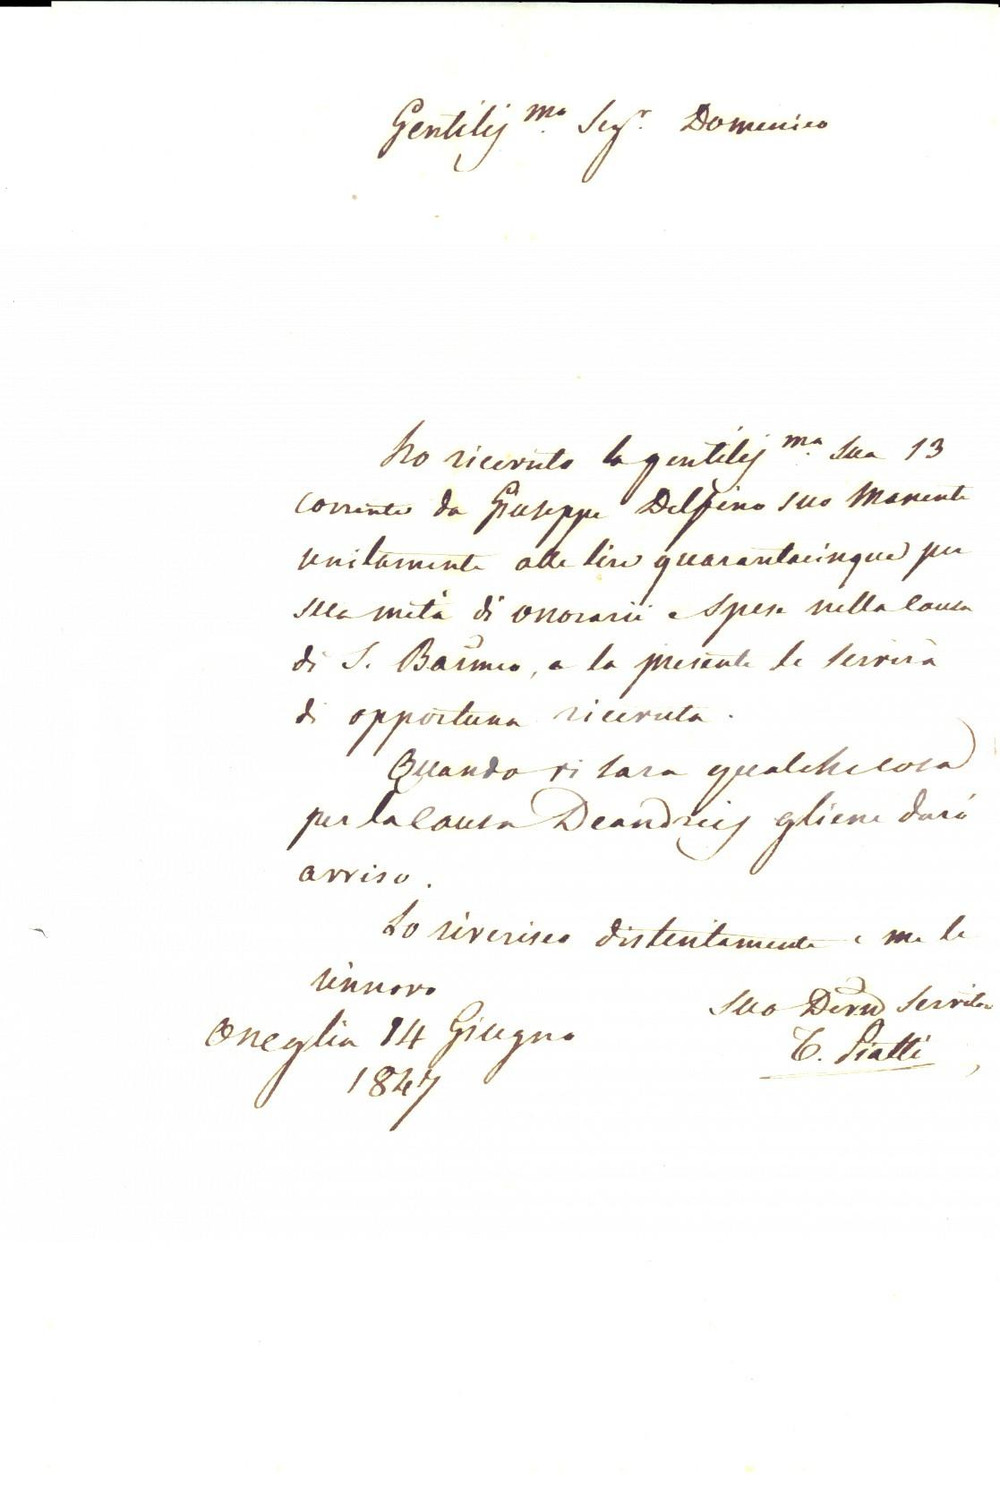 Gentiliss.ma Sig.r Domenico
Ho ricevuto la gentiliss.ma sua 13
corrente da Giuseppe Delfino suo Manente
unitamente alle lire quarantacinque per
sua metà di onorarii e spese nella causa
di S. Barmeo, e la presente le servirà
di opportuna ricevuta.
Quando vi sara qualche cosa
per la causa Deandreis gliene darò
avviso.
Lo riverisco distintamente e me le
rinnovo
Suo Devmo Servitor
Oneglia 14 Giugno
1847
Piatti